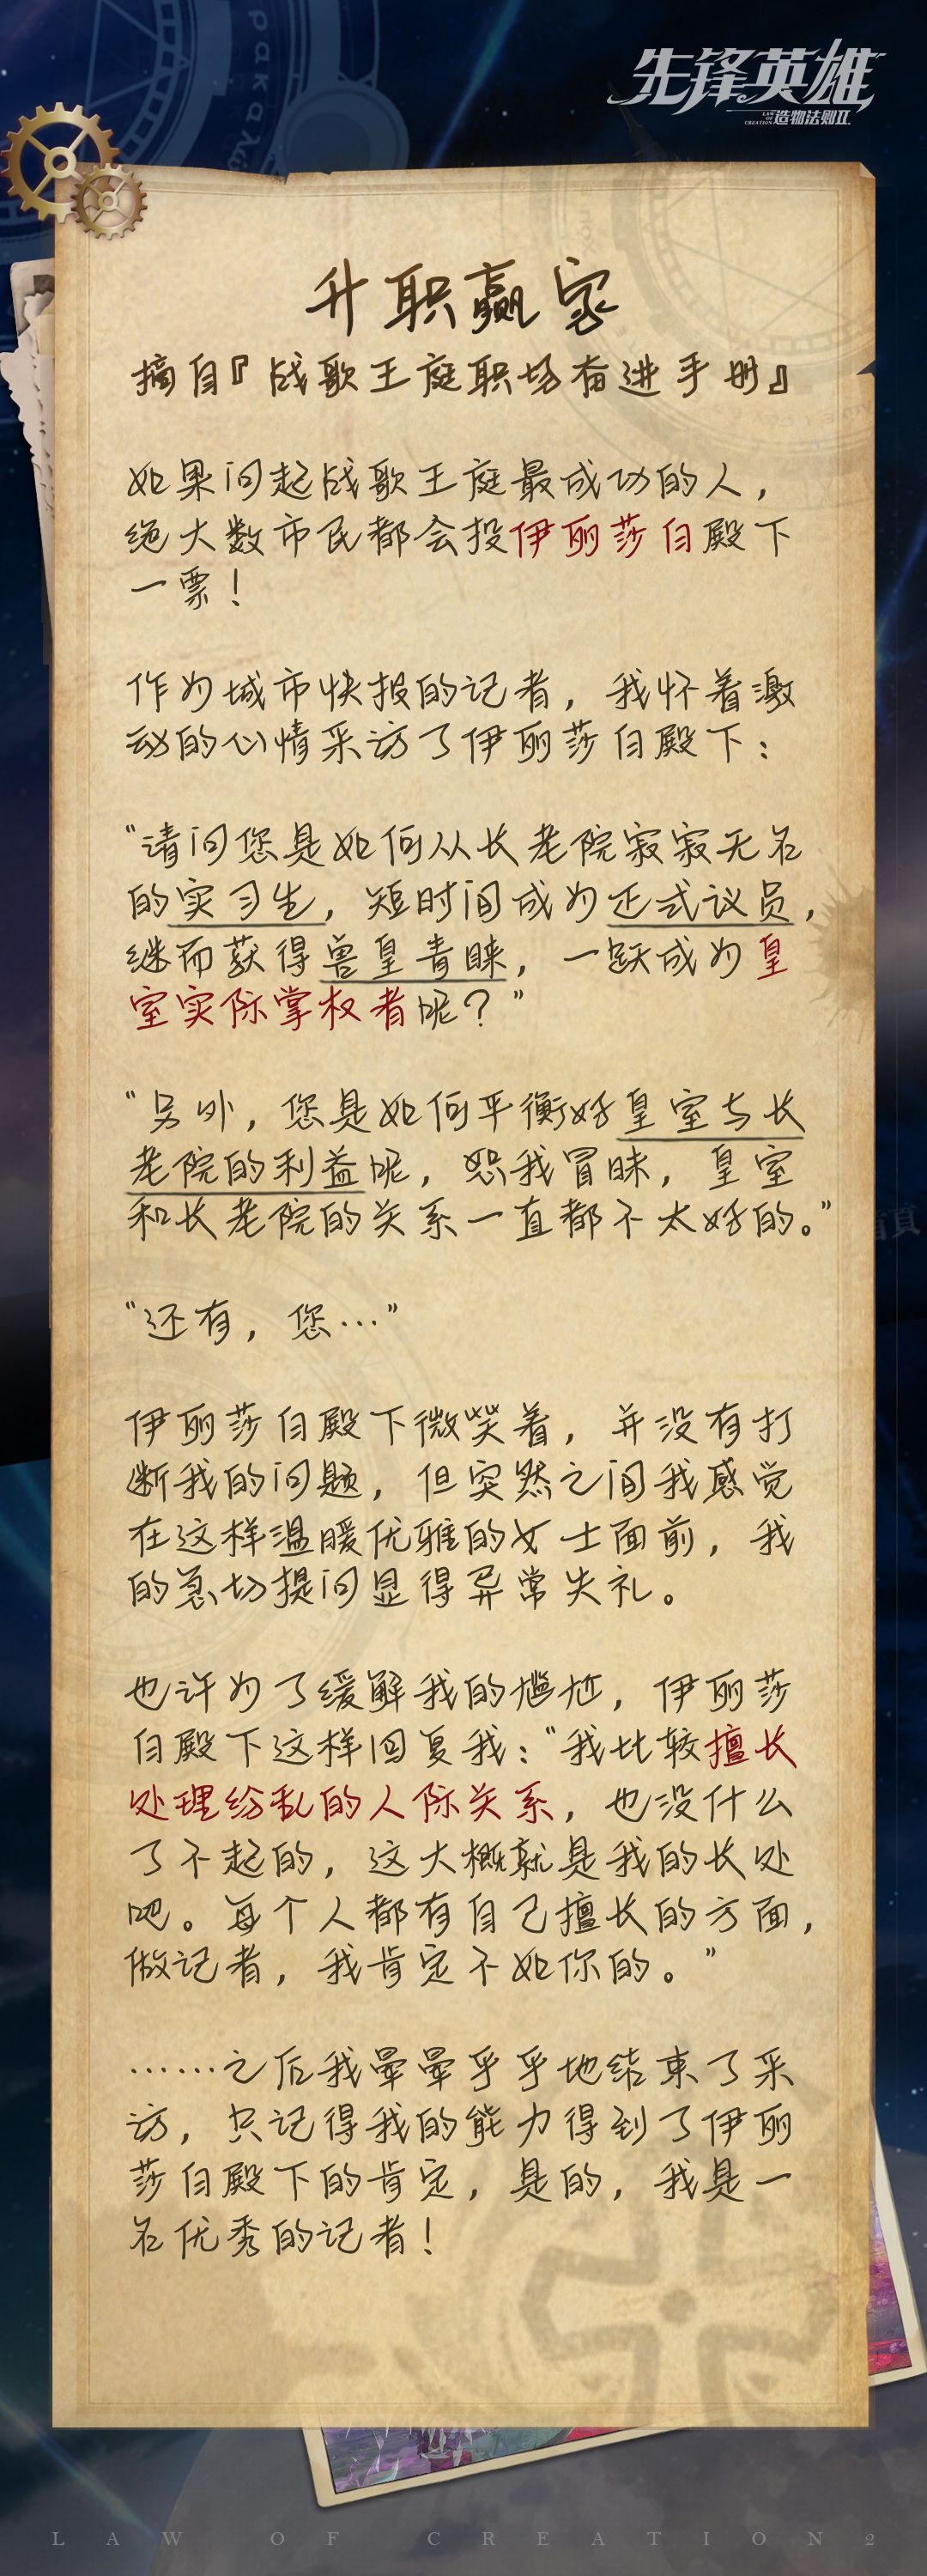 先锋英雄
LAW OF CREATION 造物法则II
升职赢家
摘自『战歌王庭职场奋进手册』
如果问起战歌王庭最成功的人，
绝大数市民都会投伊丽莎白殿下
一票！
作为城市快报的记者，我怀着激
动的心情采访了伊丽莎白殿下：
“请问您是如何从长老院寂寂无名
的实习生，短时间成为正式议员，
继而获得兽皇青睐，一跃成为皇
室实际掌权者呢？”
“另外，您是如何平衡好皇室与长
老院的利益呢，恕我冒昧，皇室
和长老院的关系一直都不太好的。”
“还有，您…”
伊丽莎白殿下微笑着，并没有打
断我的问题，但突然之间我感觉
在这样温暖优雅的女士面前，我
的急切提问显得异常失礼。
也许为了缓解我的尴尬，伊丽莎
白殿下这样回复我：“我比较擅长
处理纷乱的人际关系，也没什么
了不起的，这大概就是我的长处
吧。每个人都有自己擅长的方面，
做记者，我肯定不如你的。”
……之后我晕晕乎乎地结束了采
访，只记得我的能力得到了伊丽
莎白殿下的肯定，是的，我是一
名优秀的记者！
LAW OF CREATION2